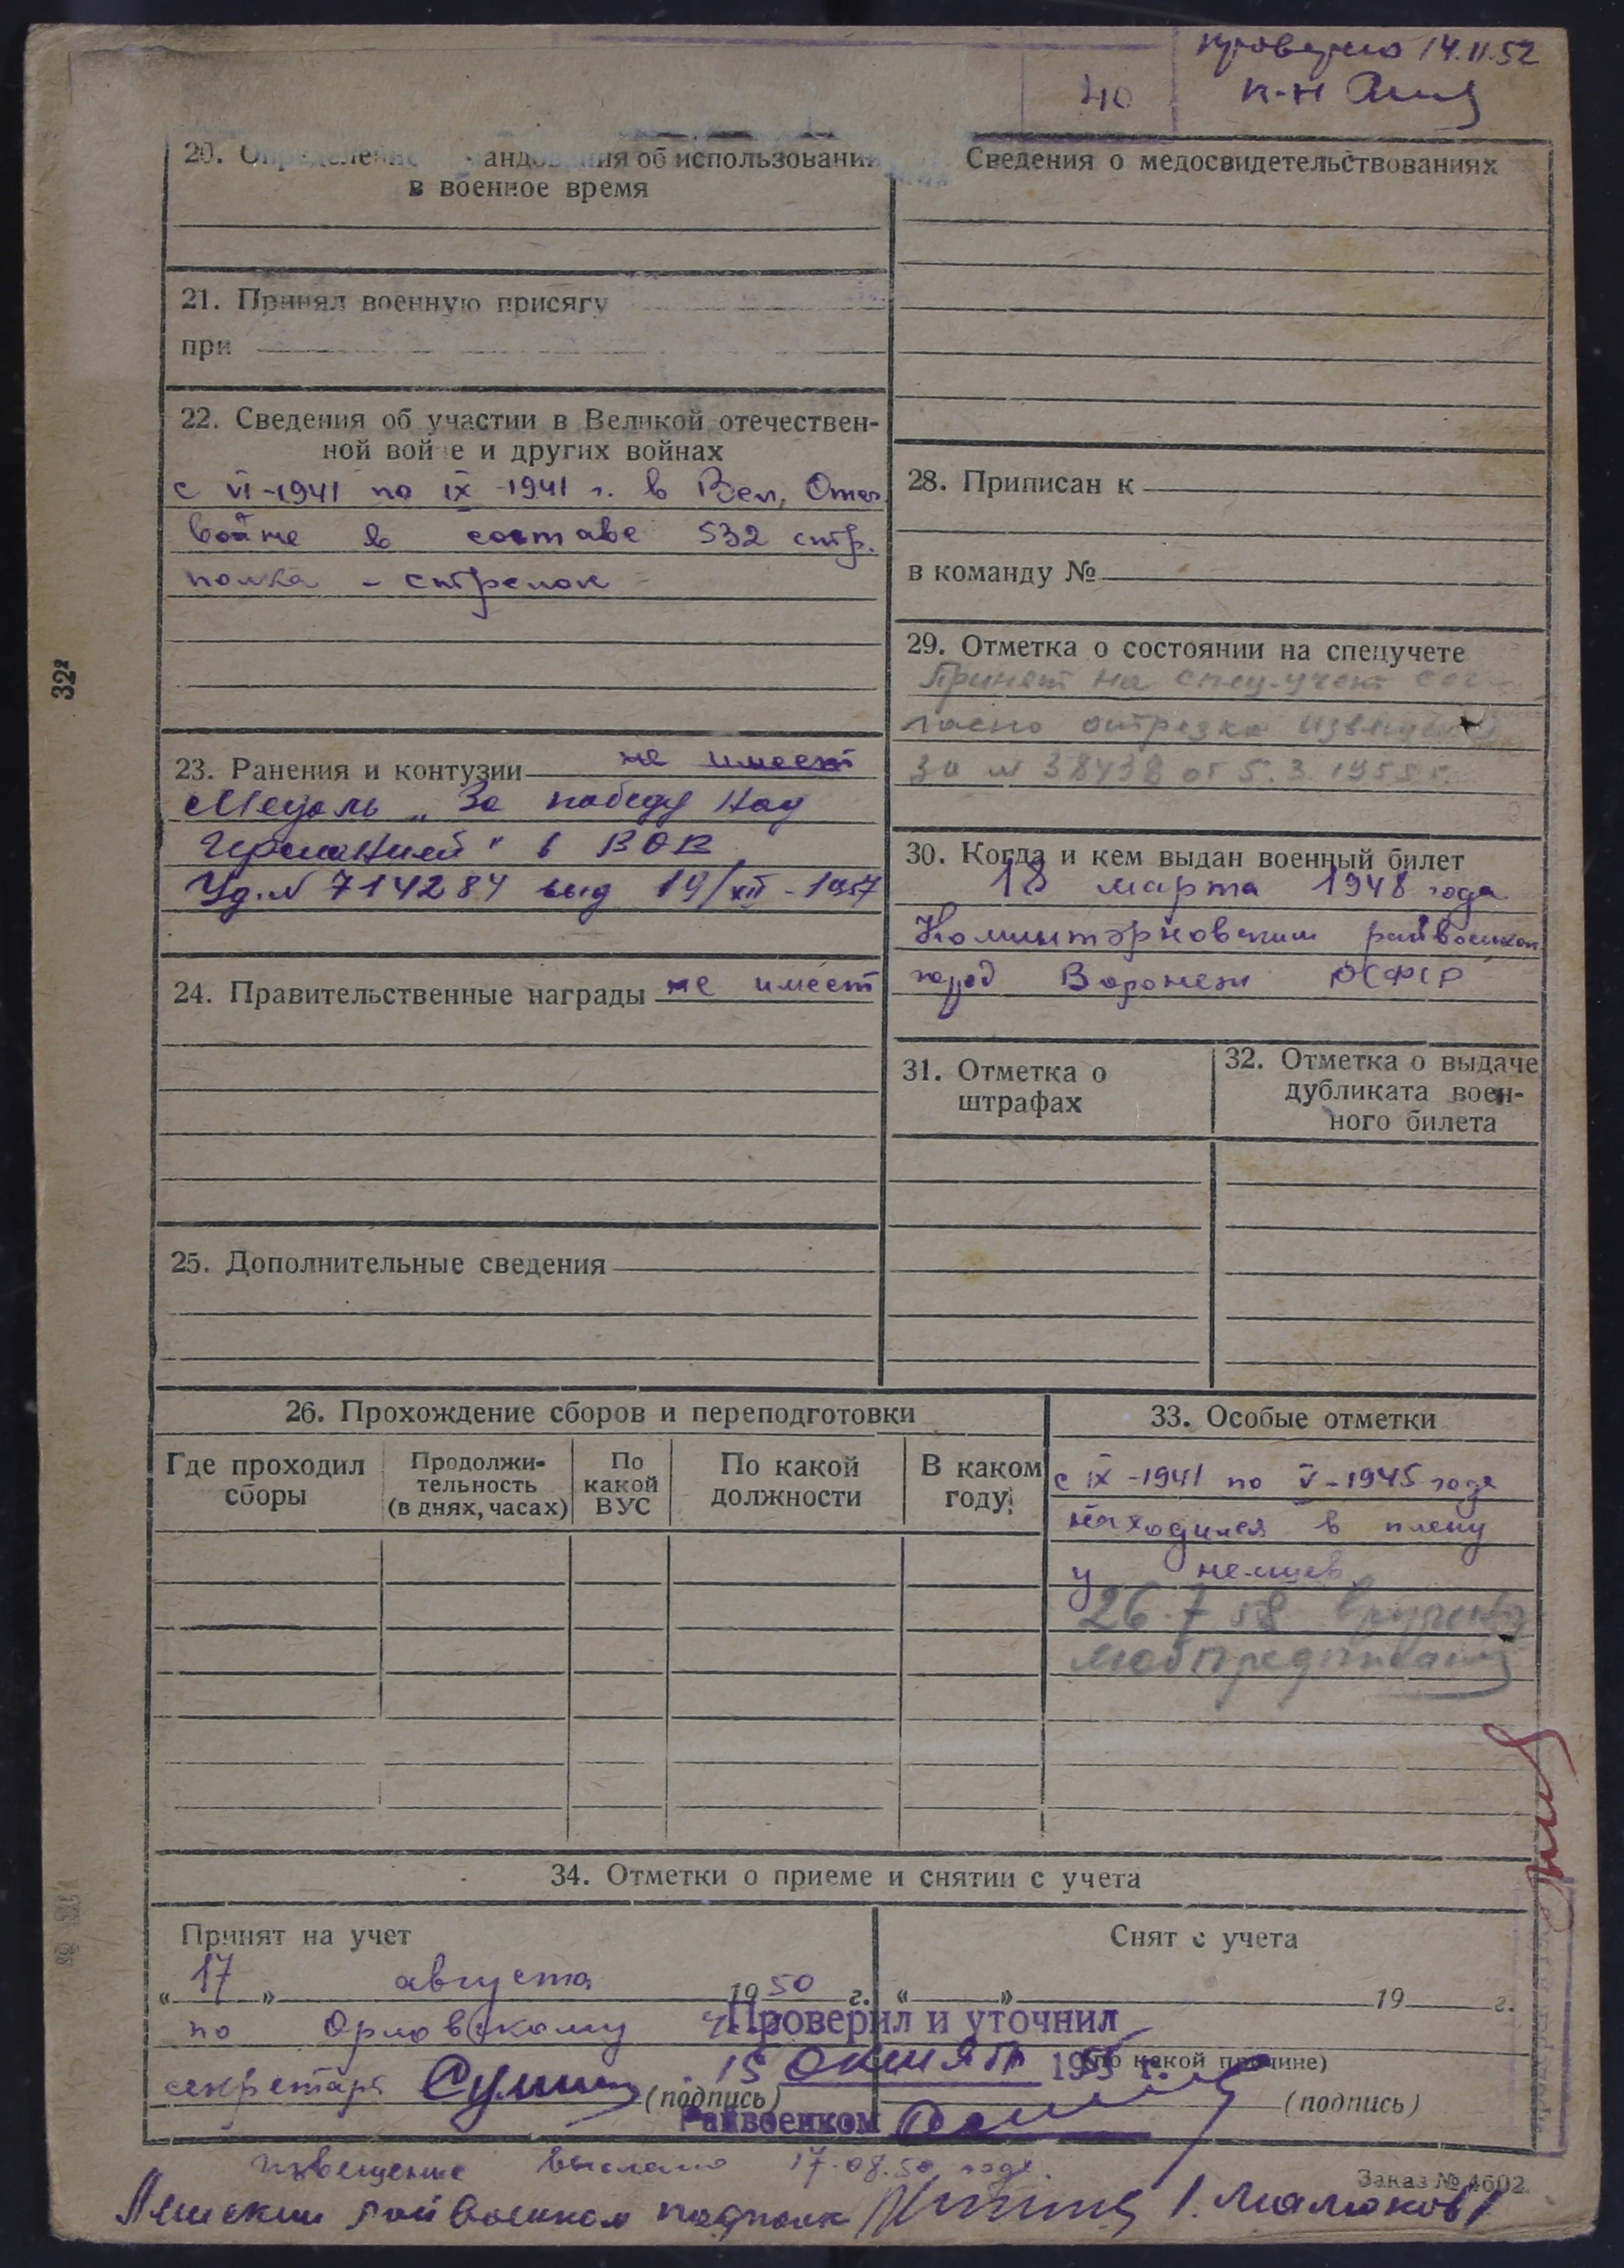 проверено 14.11.52
40
к-н
20. Определение командования об использовании
в военное время
21. Принял военную присягу
при
22. Сведения об участии в Великой отечествен-
ной войне и других войнах
с VI-1941 по IX-1941 г. в Вел, Отеч.
войне в составе 532 стр.
полка - стрелок -
23. Ранения и контузии не имеет
Медаль „За победу над
Германией" в ВОВ
Уд. № 714284 выд 19/XII-1957
24. Правительственные награды не имеет
25. Дополнительные сведения
Сведения о медосвидетельствованиях
28. Приписан к
в команду №
29. Отметка о состоянии на спецучете
Принят на спец.учет сог-
ласно отрезка извещения
за № 38438 от 5.3.1955 г.
30. Когда и кем выдан военный билет
18 марта 1948 года
Коминтэрновским райвоенком
город Воронеж РСФСР
31. Отметка о
штрафах
32. Отметка о выдаче
дубликата воен-
ного билета
26. Прохождение сборов и переподготовки
Где проходил
сборы
Продолжи-
тельность
(в днях, часах)
По
какой
ВУС
По какой
должности
В каком
году
33. Особые отметки
с IX-1941 по V-1945 года
находился в плену
у немцев
26.7.58 вручено
мобпредписание
34. Отметки о приеме и снятии с учета
Принят на учет
„17" августа 1950 г.
по Орловскому
секретарь (подпись)
Снят с учета
„ " 19 г.
(по какой причине)
(подпись)
Проверил и уточнил
15 октября 195 г.
Райвоенком
извещение выслано 17.08.50 года.
Заказ № 4602
райвоенком подполк /Малаков/
32²